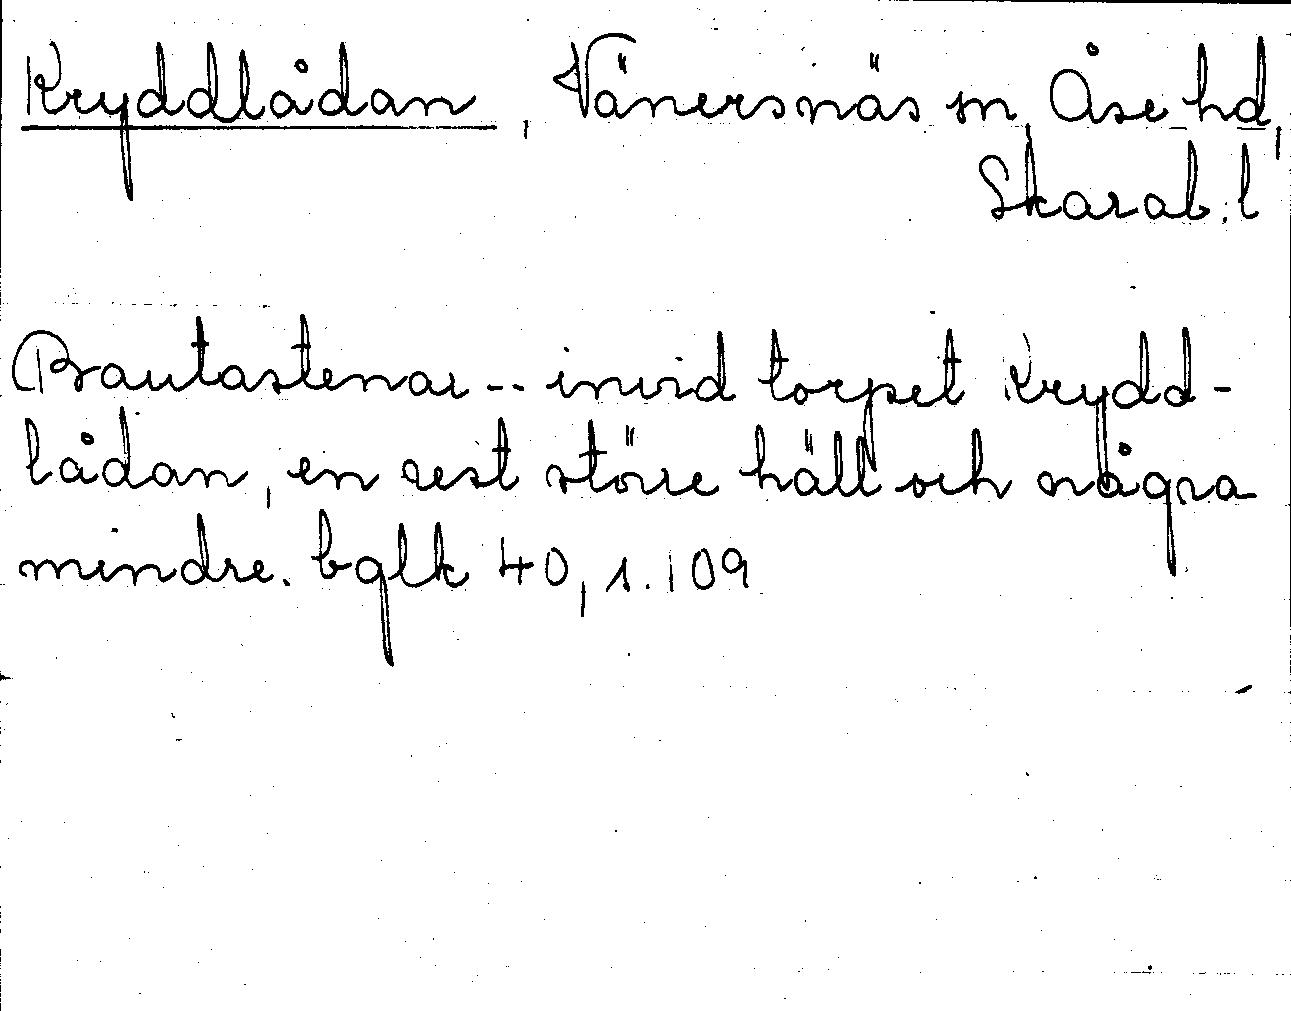 Kryddlådan, Vänersnäs sn, Åse hd,
Skarab. l
Bautastenar -- invid torpet Krydd-
lådan, en rest större häll och några
mindre. bglk 40, s. 109